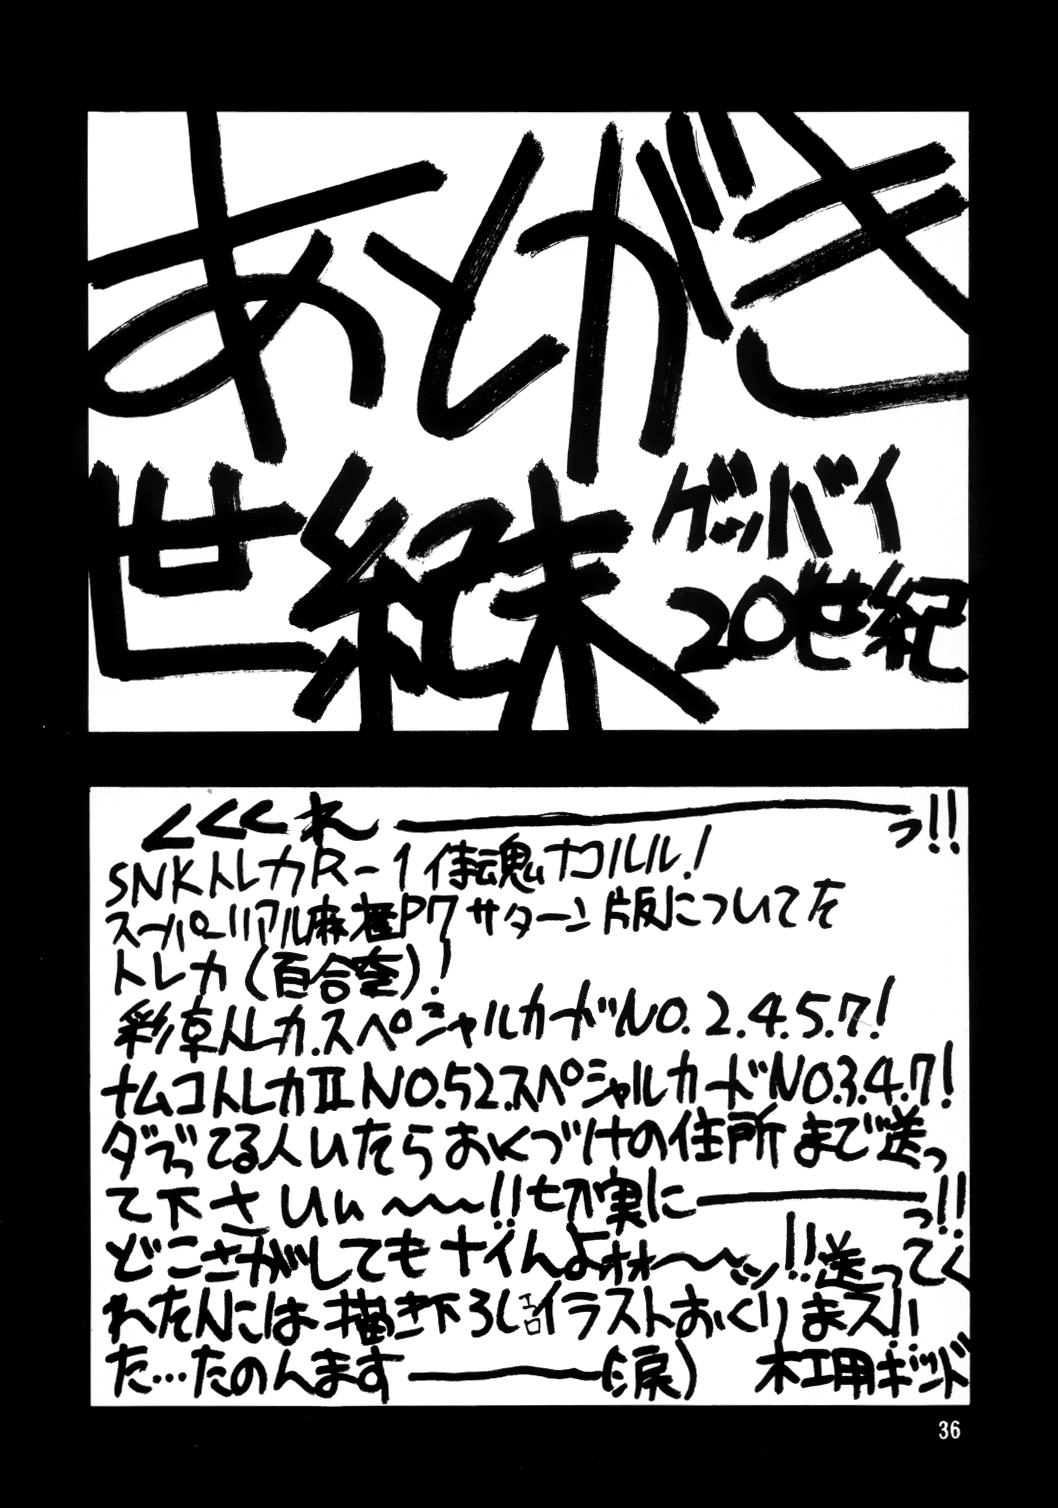 あとがき
世紀末
グッバイ
20世紀
くくくれ――――っ!!
SNKトレカR-1侍魂ナコルル!
スーパーリアル麻雀P7サターン版についてた
トレカ(百合) !
彩草トレカ.スペシャルカードNO.2.4.5.7!
ナムコトレカⅡNO.52.スペシャルカードNO3.4.7!
ダブってる人いたらおくづけの住所まで送っ
て下さいぃ〜〜!!切実に――――っ!!
どこさがしてもナイんよォォ〜〜ッ!!送ってく
れたんには描き下ろしエロイラストおくりまス!い
た…たのんます――――(涙) 木工用ボンド
36